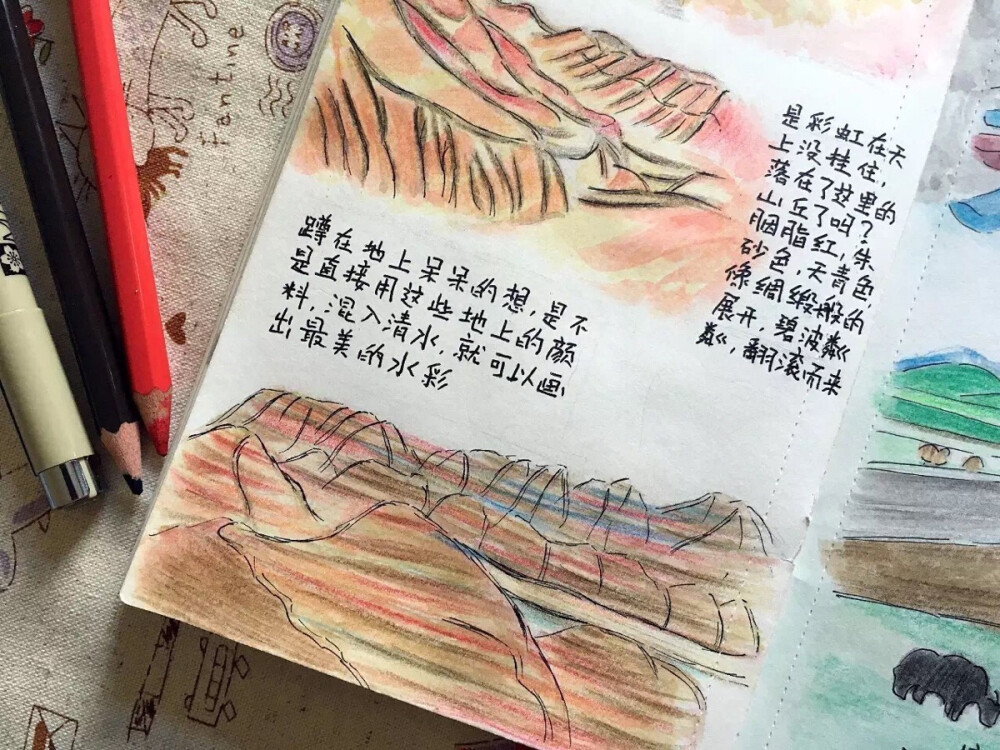 是彩虹在天
上没挂住，
落在了这里的
山丘了吗？
胭脂红，朱
砂色，天青色
像绸缎般的
展开，碧波粼
粼，翻滚而来
蹲在地上呆呆的想，是不
是直接用这些地上的颜
料，混入清水，就可以画
出最美的水彩
Fantine